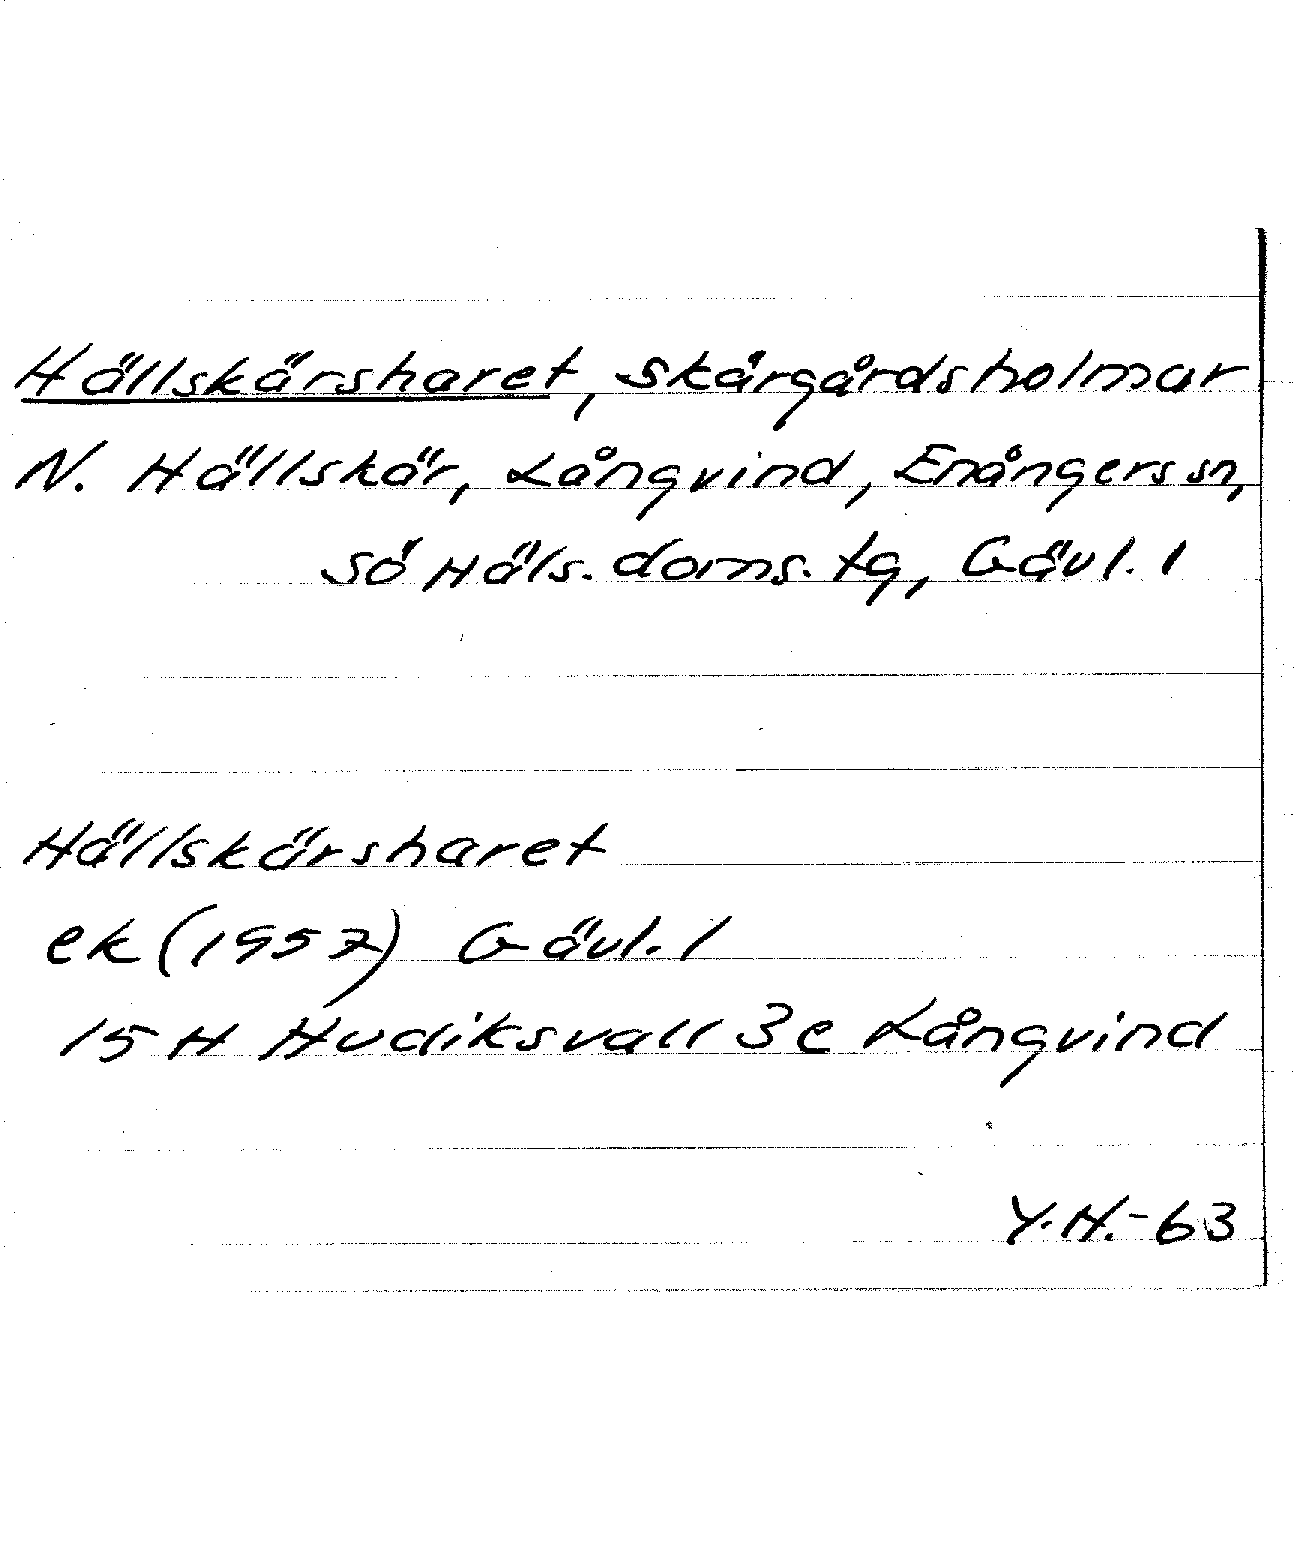 Hällskärsharet, skärgårdsholmar
N. Hällskär, Långvind, Enångers sn,
Sö Häls. doms. tg, Gävl. l
Hällskärsharet
ek (1957) Gävl. l
15 H Hudiksvall 3e Långvind
Y.H.-63